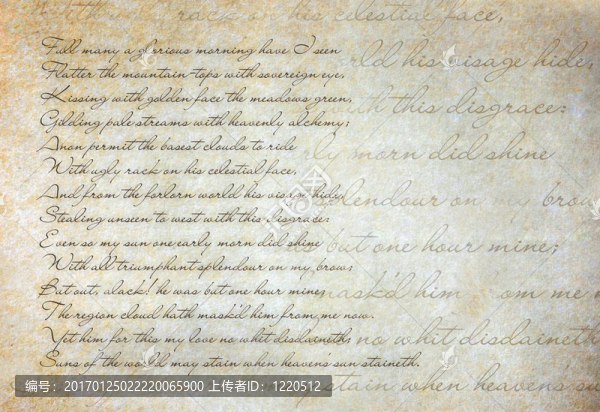 Full many a glorious morning have I seen
Flatter the mountain-tops with sovereign eye,
Kissing with golden face the meadows green,
Gilding pale streams with heavenly alchemy;
Anon permit the basest clouds to ride
With ugly rack on his celestial face,
And from the forlorn world his visage hide,
Stealing unseen to west with this disgrace:
Even so my sun one early morn did shine
With all triumphant splendour on my brow;
But out, alack! he was but one hour mine;
The region cloud hath mask'd him from me now.
Yet him for this my love no whit disdaineth;
Suns of the world may stain when heaven's sun staineth.
rack on his celestial face,
rld his visage hide,
th this disgrace:
rly morn did shine
plendour on my brow
but one hour mine;
mask'd him om me n
no whit disdaineth
stain when heaven's su
编号：20170125022220065900 上传者ID：1220512